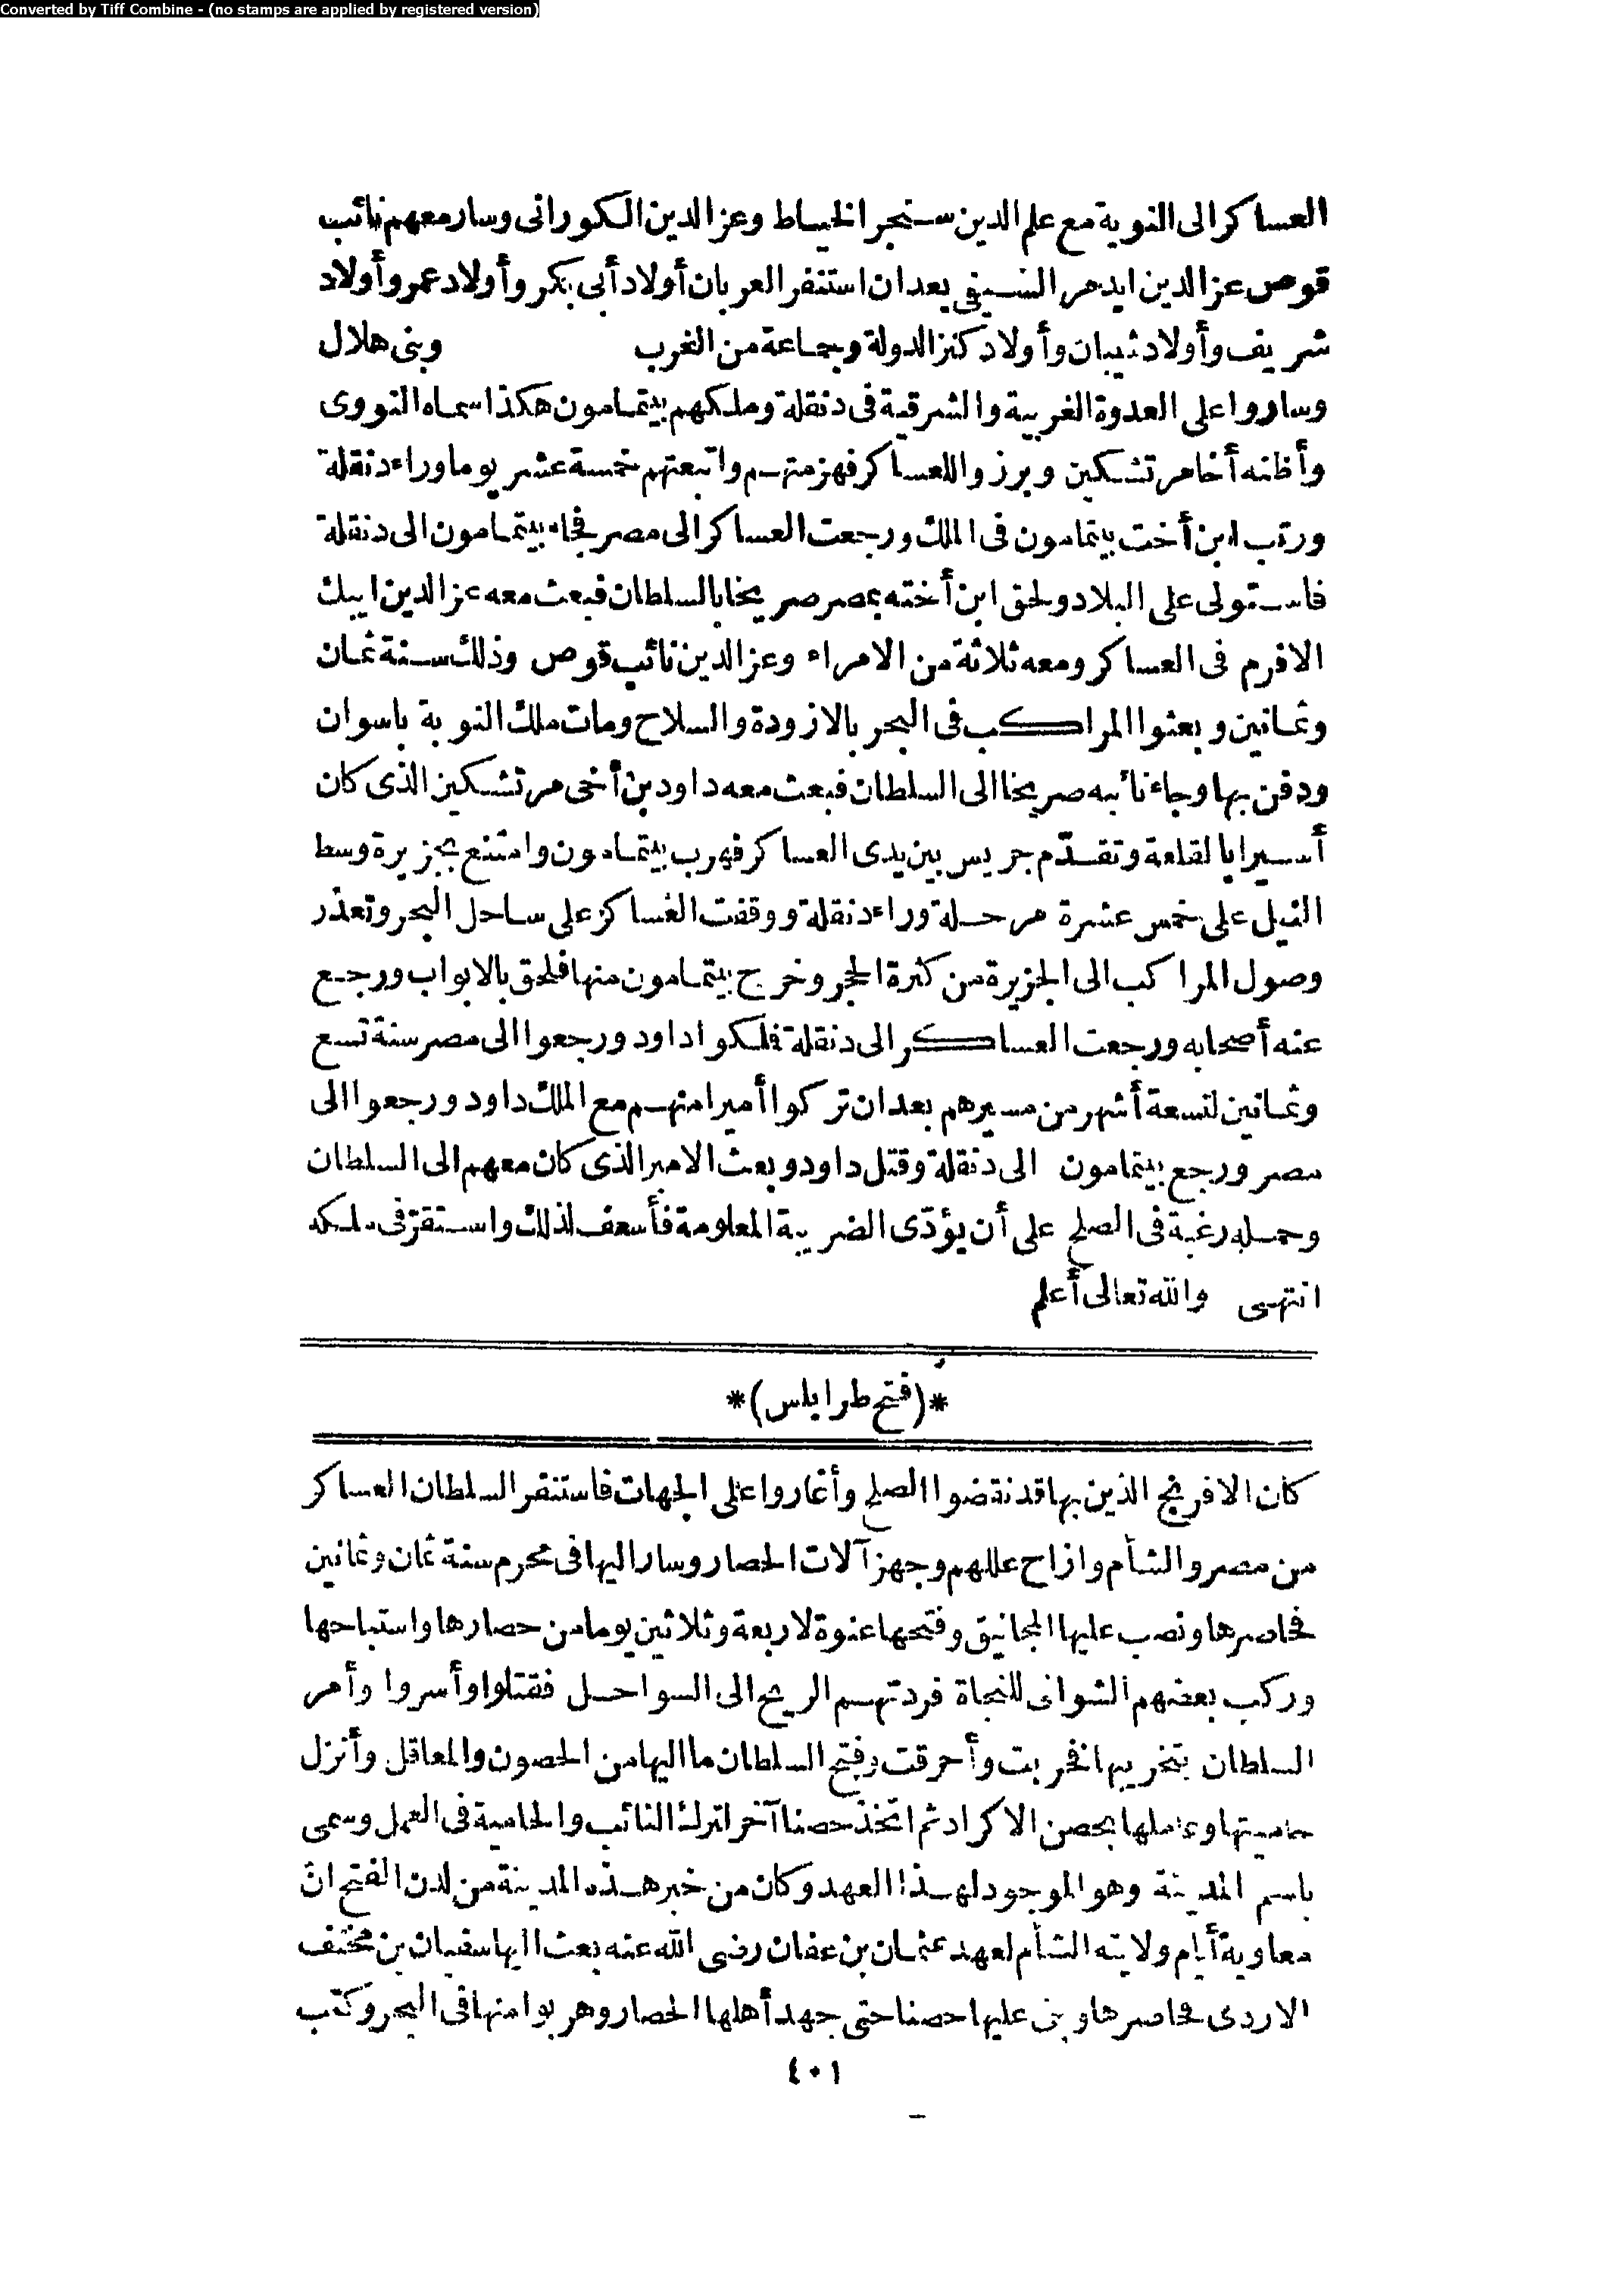 Converted by Tiff Combine - (no stamps are applied by registered version)
العساكر الى النوبة مع علم الدين سنجر الخياط وعز الدين الكورانى وسار معهم نائب
قوص عز الدين ايدمر السيفى بعد ان استنفر العربان أولاد أبى بكر وأولاد عمر وأولاد
شريف وأولاد شيبان وأولاد كنز الدولة وجماعة من الغرب وبنى هلال
وساروا على العدوة الغربية والشرقية فى دنقلة وملكهم بيتمامون هكذا سماه النووى
وأظنه أخا مرتشكين وبرزوا للعساكر فهزمتهم واتبعتهم خمسة عشر يوما وراء دنقلة
ورتب ابن أخت بيتمامون فى الملك ورجعت العساكر الى مصر فجاء بيتمامون الى دنقلة
فاستولى على البلاد ولحق ابن أخته بمصر صريخا بالسلطان فبعث معه عز الدين ايبك
الافرم فى العساكر ومعه ثلاثة من الامراء وعز الدين نائب قوص وذلك سنة ثمان
وثمانين وبعثوا المراكب فى البحر بالازودة والسلاح ومات ملك النوبة باسوان
ودفن بها وجاء نائبه صريخا الى السلطان فبعث معه داود بن أخى مرتشكين الذى كان
أسيرا بالقلعة وتقدّم جريس بين يدى العساكر فهرب بيتمامون وامتنع بجزيرة وسط
النيل على خمس عشرة مرحلة وراء دنقلة ووقفت العساكر على ساحل البحر وتعذر
وصول المراكب الى الجزيرة من كثرة الحجر وخرج بيتمامون منها فلحق بالابواب ورجع
عنه أصحابه ورجعت العساكر الى دنقلة فملكوا داود ورجعوا الى مصر سنة تسع
وثمانين لتسعة أشهر من مسيرهم بعد ان تركوا أميرا منهم مع الملك داود ورجعوا الى
مصر ورجع بيتمامون الى دنقلة وقتل داود وبعث الامير الذى كان معهم الى السلطان
وحمله رغبة فى الصلح على أن يؤدّى الضريبة المعلومة فأسعف لذلك واستقرّ فى ملكه
انتهى والله تعالى أعلم
*(فتح طرابلس)*
كان الافرنج الذين بها قد نقضوا الصلح وأغاروا على الجهات فاستنفر السلطان العساكر
من مصر والشأم وازاح عللهم وجهز آلات الحصار وسار اليها فى محرم سنة ثمان وثمانين
فحاصرها ونصب عليها المجانيق وفتحها عنوة لاربعة وثلاثين يوما من حصارها واستباحها
وركب بعضهم الشوانى للنجاة فردتهم الريح الى السواحل فقتلوا وأسروا وأمر
السلطان بتخريبها فخربت وأحرقت وفتح السلطان ما اليها من الحصون والمعاقل وأنزل
حاميتها وعاملها بحصن الاكراد ثم اتخذ حصنا آخر لترك النائب والحامية فى العمل وسمى
باسم المدينة وهو الموجود لهذا العهد وكان من خبر هذه المدينة من لدن الفتح انّ
معاوية أيام ولايته الشأم لعهد عثمان بن عفان رضى الله عنه بعث اليها سفيان بن مخنف
الازدى فحاصرها وبنى عليها حصنا حتى جهد أهلها الحصار وهربوا منها فى البحر وكتب
٤٠١